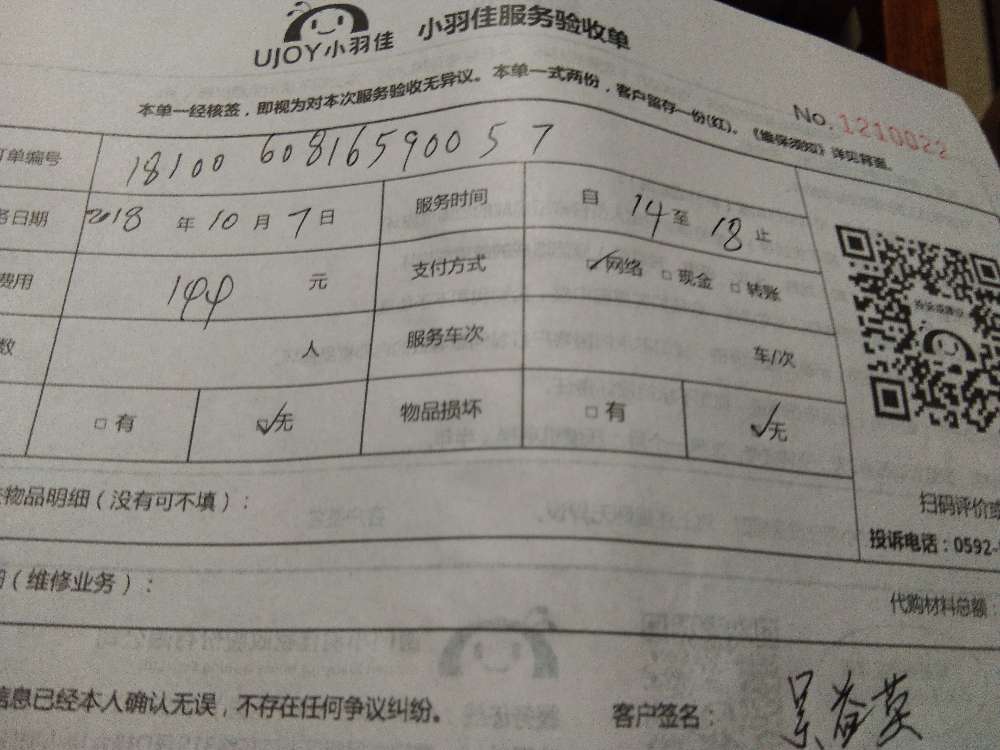 UJOY小羽佳 小羽佳服务验收单
本单一经核签，即视为对本次服务验收无异议。本单一式两份，客户留存一份(红)。《维保须知》详见背面。
No. 1210022
订单编号 18100 60816590057
务日期 2018 年 10 月 7 日 服务时间 自 14 至 18 止
费用 144 元 支付方式 网络 现金 转账
数 人 服务车次 车/次
有 无 物品损坏 有 无
物品明细（没有可不填）：
扫码评价或
投诉电话：0592-
（维修业务）：
代购材料总额
信息已经本人确认无误，不存在任何争议纠纷。
客户签名：